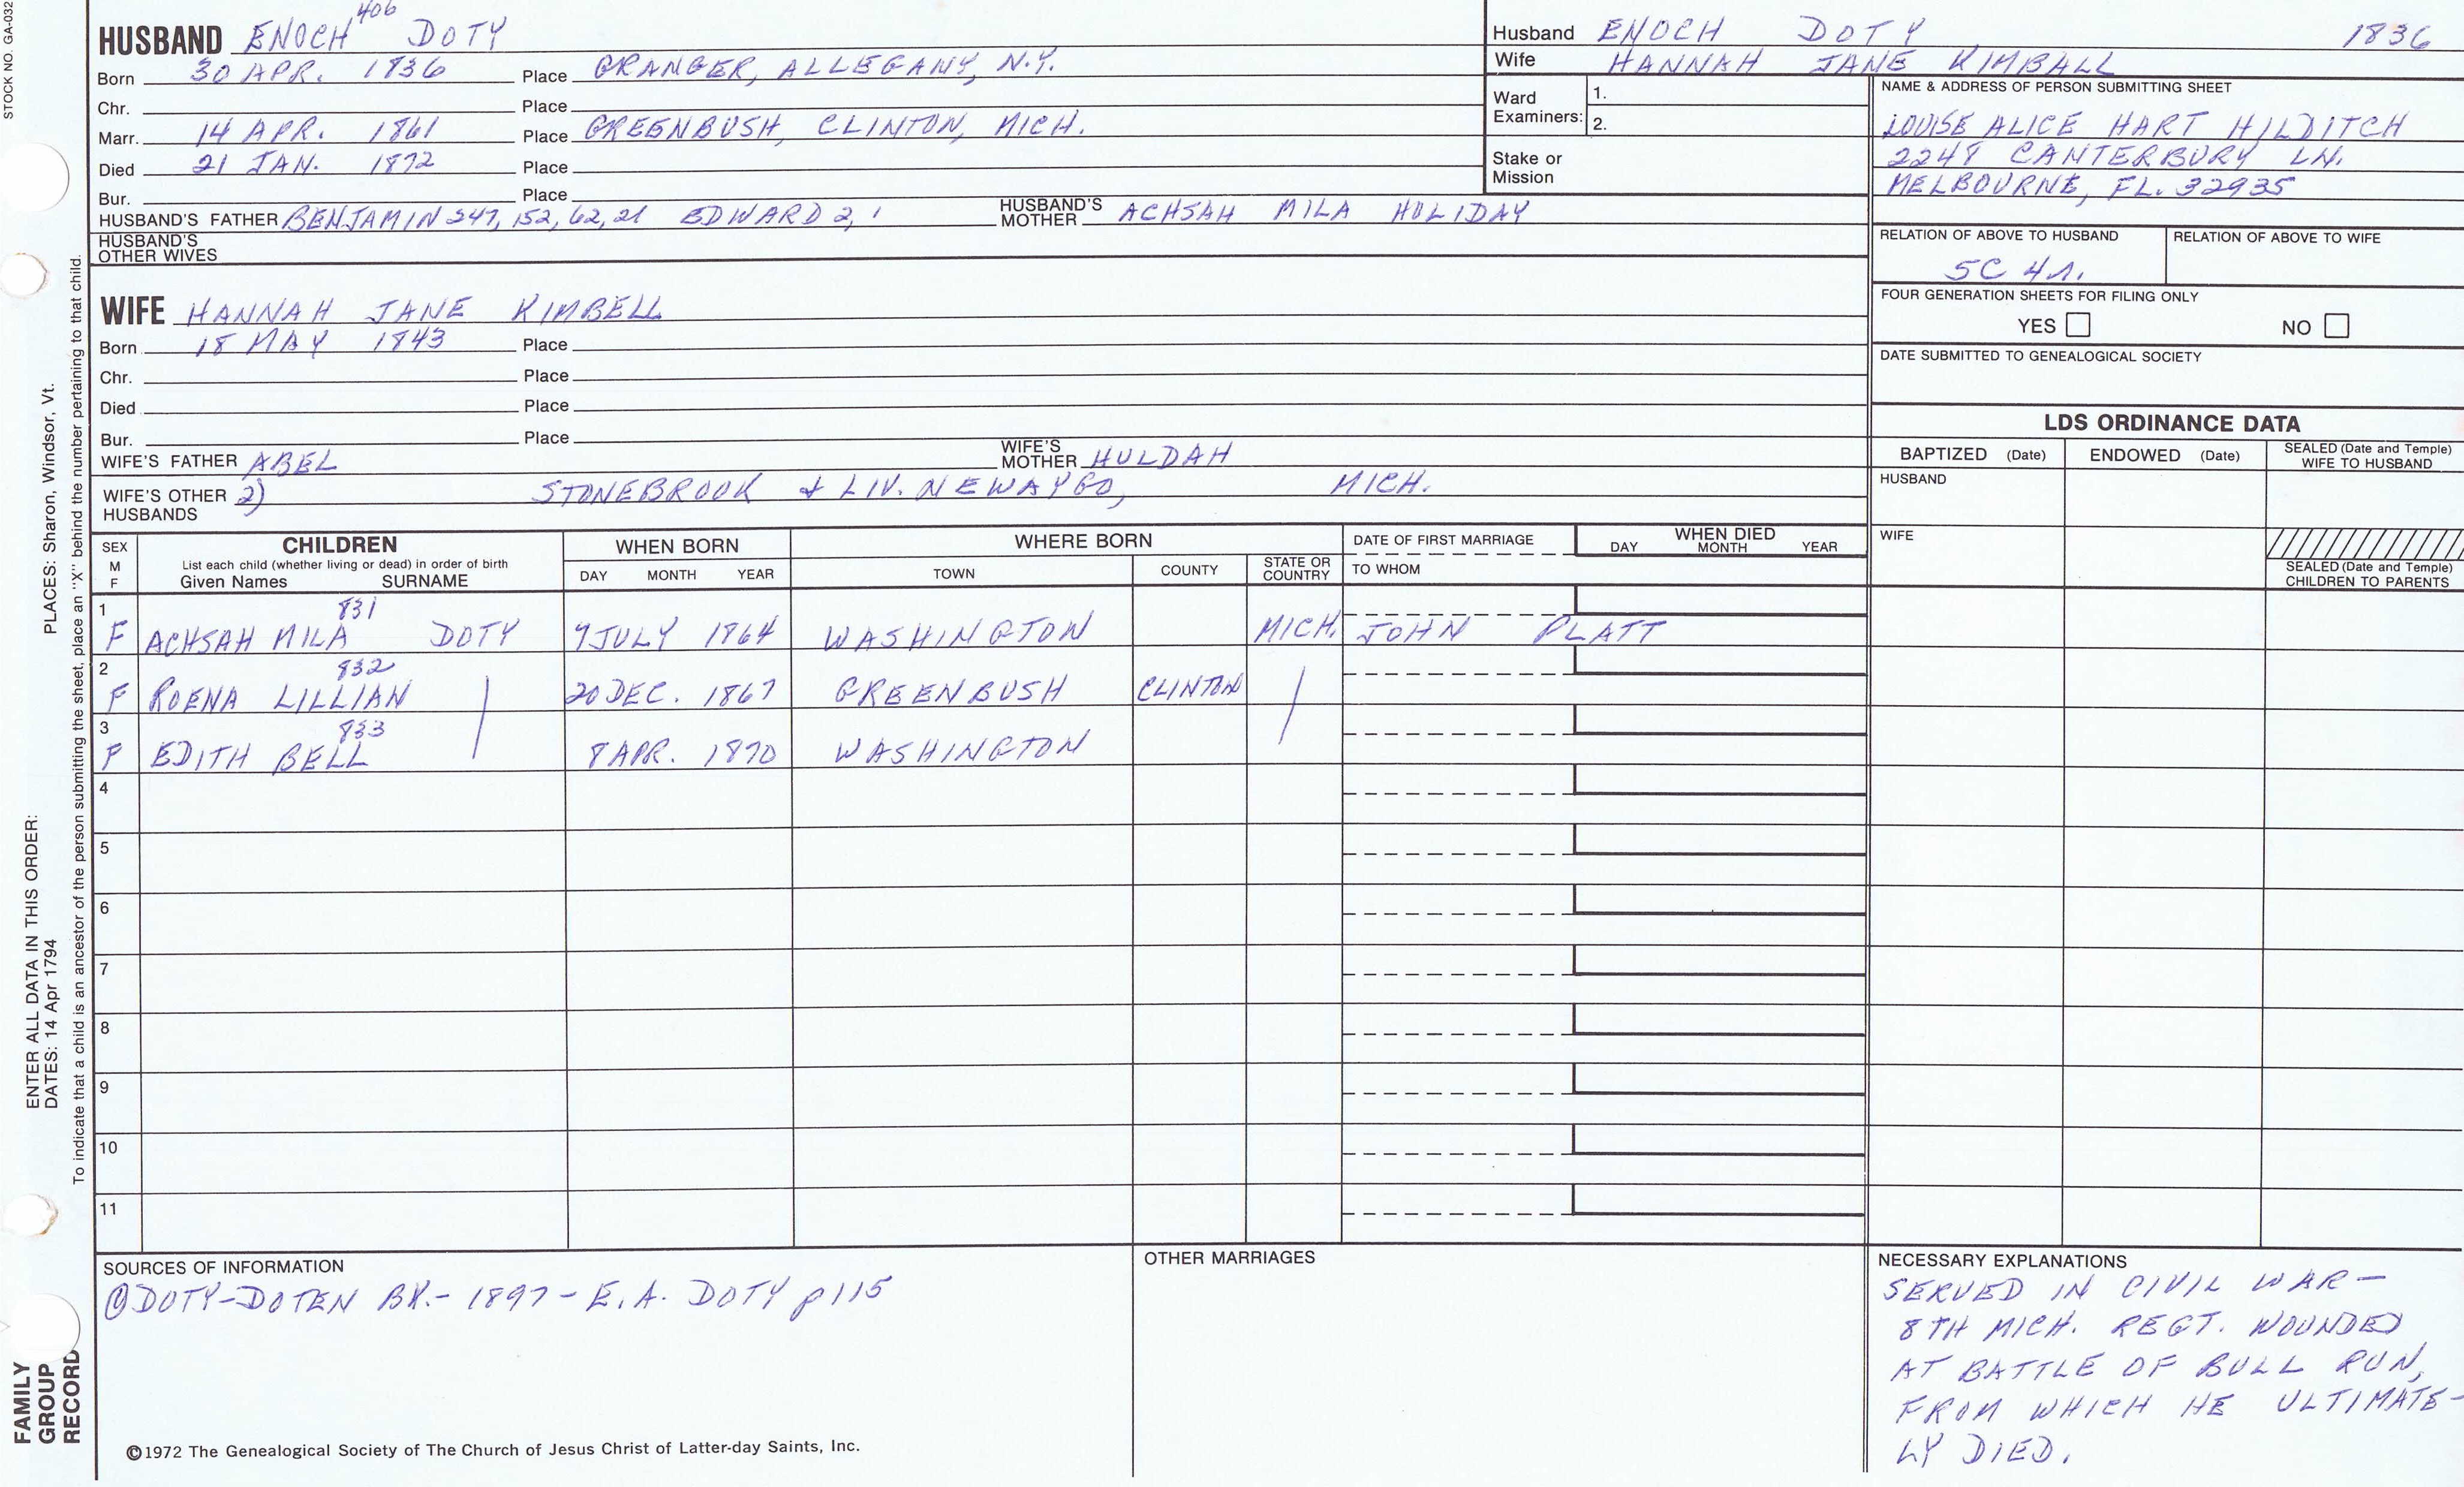 STOCK NO. GA-032
HUSBAND ENOCH 406 DOTY
Born 30 APR. 1836 Place GRANGER, ALLEGANY, N.Y.
Chr. Place
Marr. 14 APR. 1861 Place GREENBUSH, CLINTON, MICH.
Died 21 JAN. 1872 Place
Bur. Place
HUSBAND'S FATHER BENJAMIN 247, 152, 62, 21 EDWARD 2, 1 HUSBAND'S MOTHER ACHSAH MILA HOLIDAY
HUSBAND'S OTHER WIVES
WIFE HANNAH JANE KIMBELL
Born 18 MAY 1843 Place
Chr. Place
Died Place
Bur. Place
WIFE'S FATHER ABEL WIFE'S MOTHER HULDAH
WIFE'S OTHER HUSBANDS 2) STONEBROOK & LIV. NEWAYGO, MICH.
Husband ENOCH DOTY 1836
Wife HANNAH JANE KIMBALL
Ward Examiners: 1.
2.
Stake or Mission
NAME & ADDRESS OF PERSON SUBMITTING SHEET
LOUISE ALICE HART HILDITCH
2248 CANTERBURY LN.
MELBOURNE, FL. 32935
RELATION OF ABOVE TO HUSBAND RELATION OF ABOVE TO WIFE
5C 4r.
FOUR GENERATION SHEETS FOR FILING ONLY
YES NO
DATE SUBMITTED TO GENEALOGICAL SOCIETY
LDS ORDINANCE DATA
BAPTIZED (Date) ENDOWED (Date) SEALED (Date and Temple) WIFE TO HUSBAND
HUSBAND
WIFE
SEALED (Date and Temple) CHILDREN TO PARENTS
SEX M F CHILDREN WHEN BORN WHERE BORN DATE OF FIRST MARRIAGE WHEN DIED
List each child (whether living or dead) in order of birth
Given Names SURNAME DAY MONTH YEAR TOWN COUNTY STATE OR COUNTRY TO WHOM DAY MONTH YEAR
1 831
F ACHSAH MILA DOTY 7 JULY 1864 WASHINGTON MICH. JOHN PLATT
2 832
F ROENA LILLIAN 20 DEC. 1867 GREENBUSH CLINTON
3 833
F EDITH BELL 8 APR. 1870 WASHINGTON
4
5
6
7
8
9
10
11
SOURCES OF INFORMATION
① DOTY-DOTEN BK.- 1897 - E.A. DOTY p 115
©1972 The Genealogical Society of The Church of Jesus Christ of Latter-day Saints, Inc.
OTHER MARRIAGES
NECESSARY EXPLANATIONS
SERVED IN CIVIL WAR -
8TH MICH. REGT. WOUNDED
AT BATTLE OF BULL RUN,
FROM WHICH HE ULTIMATE-
LY DIED.
ENTER ALL DATA IN THIS ORDER:
DATES: 14 Apr 1794 PLACES: Sharon, Windsor, Vt.
To indicate that a child is an ancestor of the person submitting the sheet, place an "X" behind the number pertaining to that child.
FAMILY
GROUP
RECORD